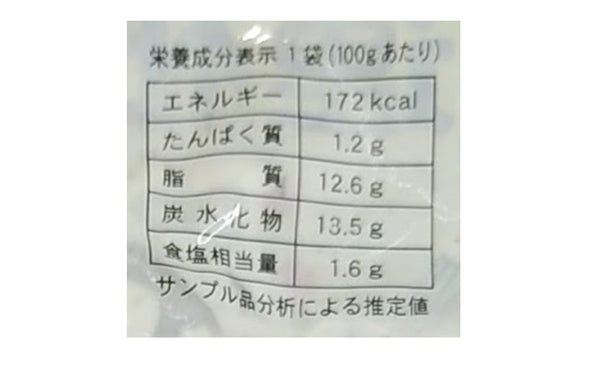 栄養成分表示 1袋(100gあたり)
エネルギー 172kcal
たんぱく質 1.2g
脂質 12.6g
炭水化物 13.5g
食塩相当量 1.6g
サンプル品分析による推定値